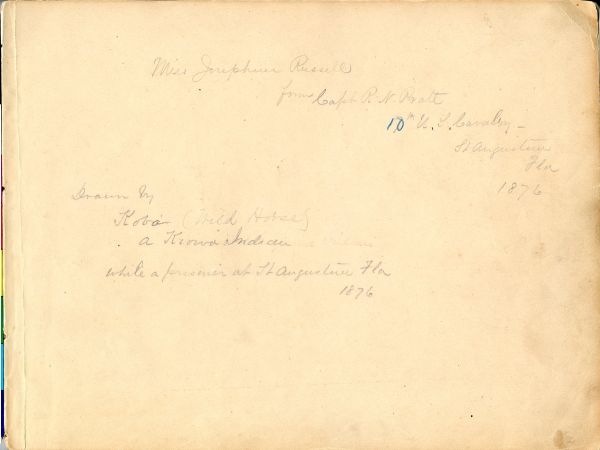 Miss Josephine Russell
from Capt R. N. Pratt
10th U. S. Cavalry -
St Augustine
Fla
1876
Drawn by
Koba (Wild Horse)
a Kiowa Indian
while a prisoner at St Augustine Fla
1876